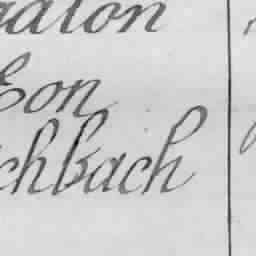 gaton
Eon
chbach